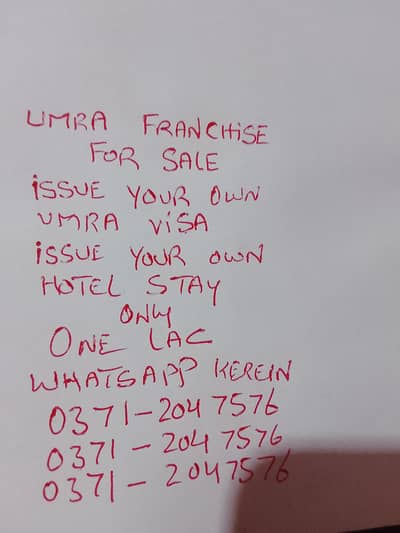 UMRA FRANCHISE
FOR SALE
ISSUE YOUR OWN
UMRA VISA
ISSUE YOUR OWN
HOTEL STAY
ONLY
ONE LAC
WHATSAPP KEREIN
0371-2047576
0371-2047576
0371-2047576